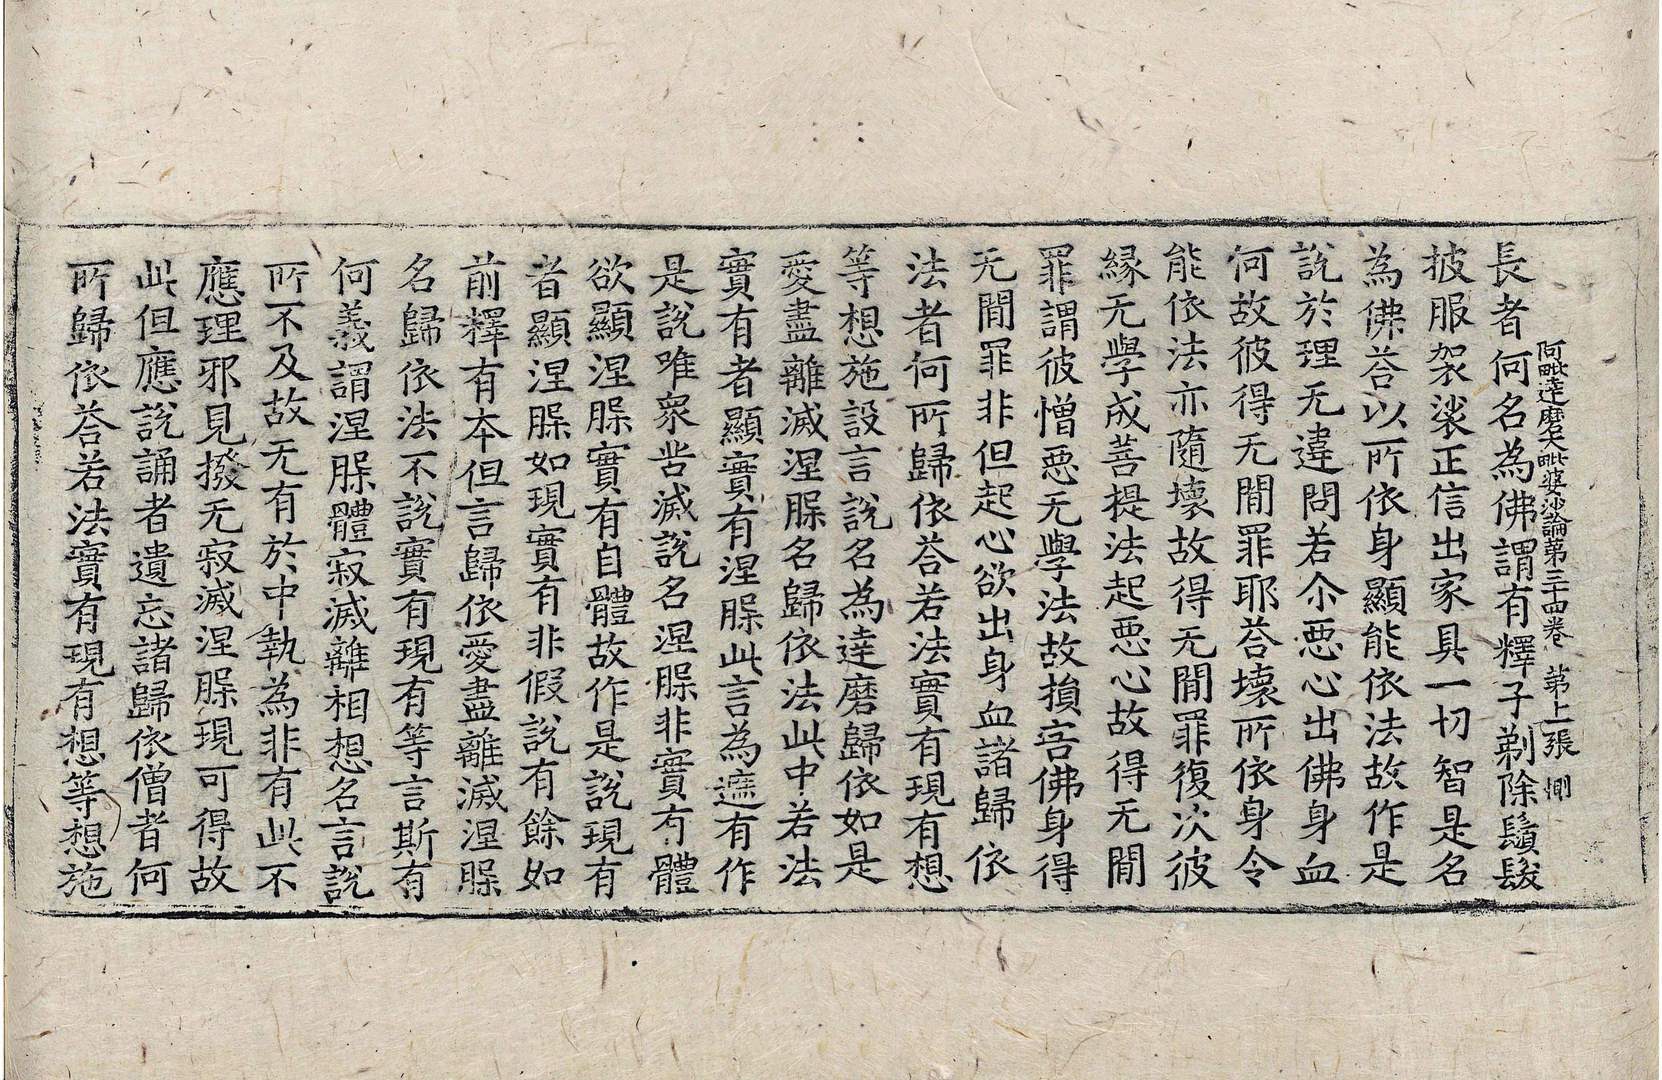 阿毗達磨大毗婆沙論第三十四卷 第上張 惻
長者何名為佛謂有釋子剃除鬚髮
披服袈裟正信出家具一切智是名
為佛荅以所依身顯能依法故作是
說於理无違問若尒惡心出佛身血
何故彼得无間罪耶荅壞所依身令
能依法亦隨壞故得无間罪復次彼
緣无學成菩提法起惡心故得无間
罪謂彼憎惡无學法故損害佛身得
无間罪非但起心欲出身血諸歸依
法者何所歸依荅若法實有現有想
等想施設言說名為達磨歸依如是
愛盡離滅涅槃名歸依法此中若法
實有者顯實有涅槃此言為遮有作
是說唯眾苦滅說名涅槃非實有體
欲顯涅槃實有自體故作是說現有
者顯涅槃如現實有非假說有餘如
前釋有本但言歸依愛盡離滅涅槃
名歸依法不說實有現有等言斯有
何義謂涅槃體寂滅離相想名言說
所不及故无有於中執為非有此不
應理邪見撥无寂滅涅槃現可得故
此但應說誦者遺忘諸歸依僧者何
所歸依荅若法實有現有想等想施